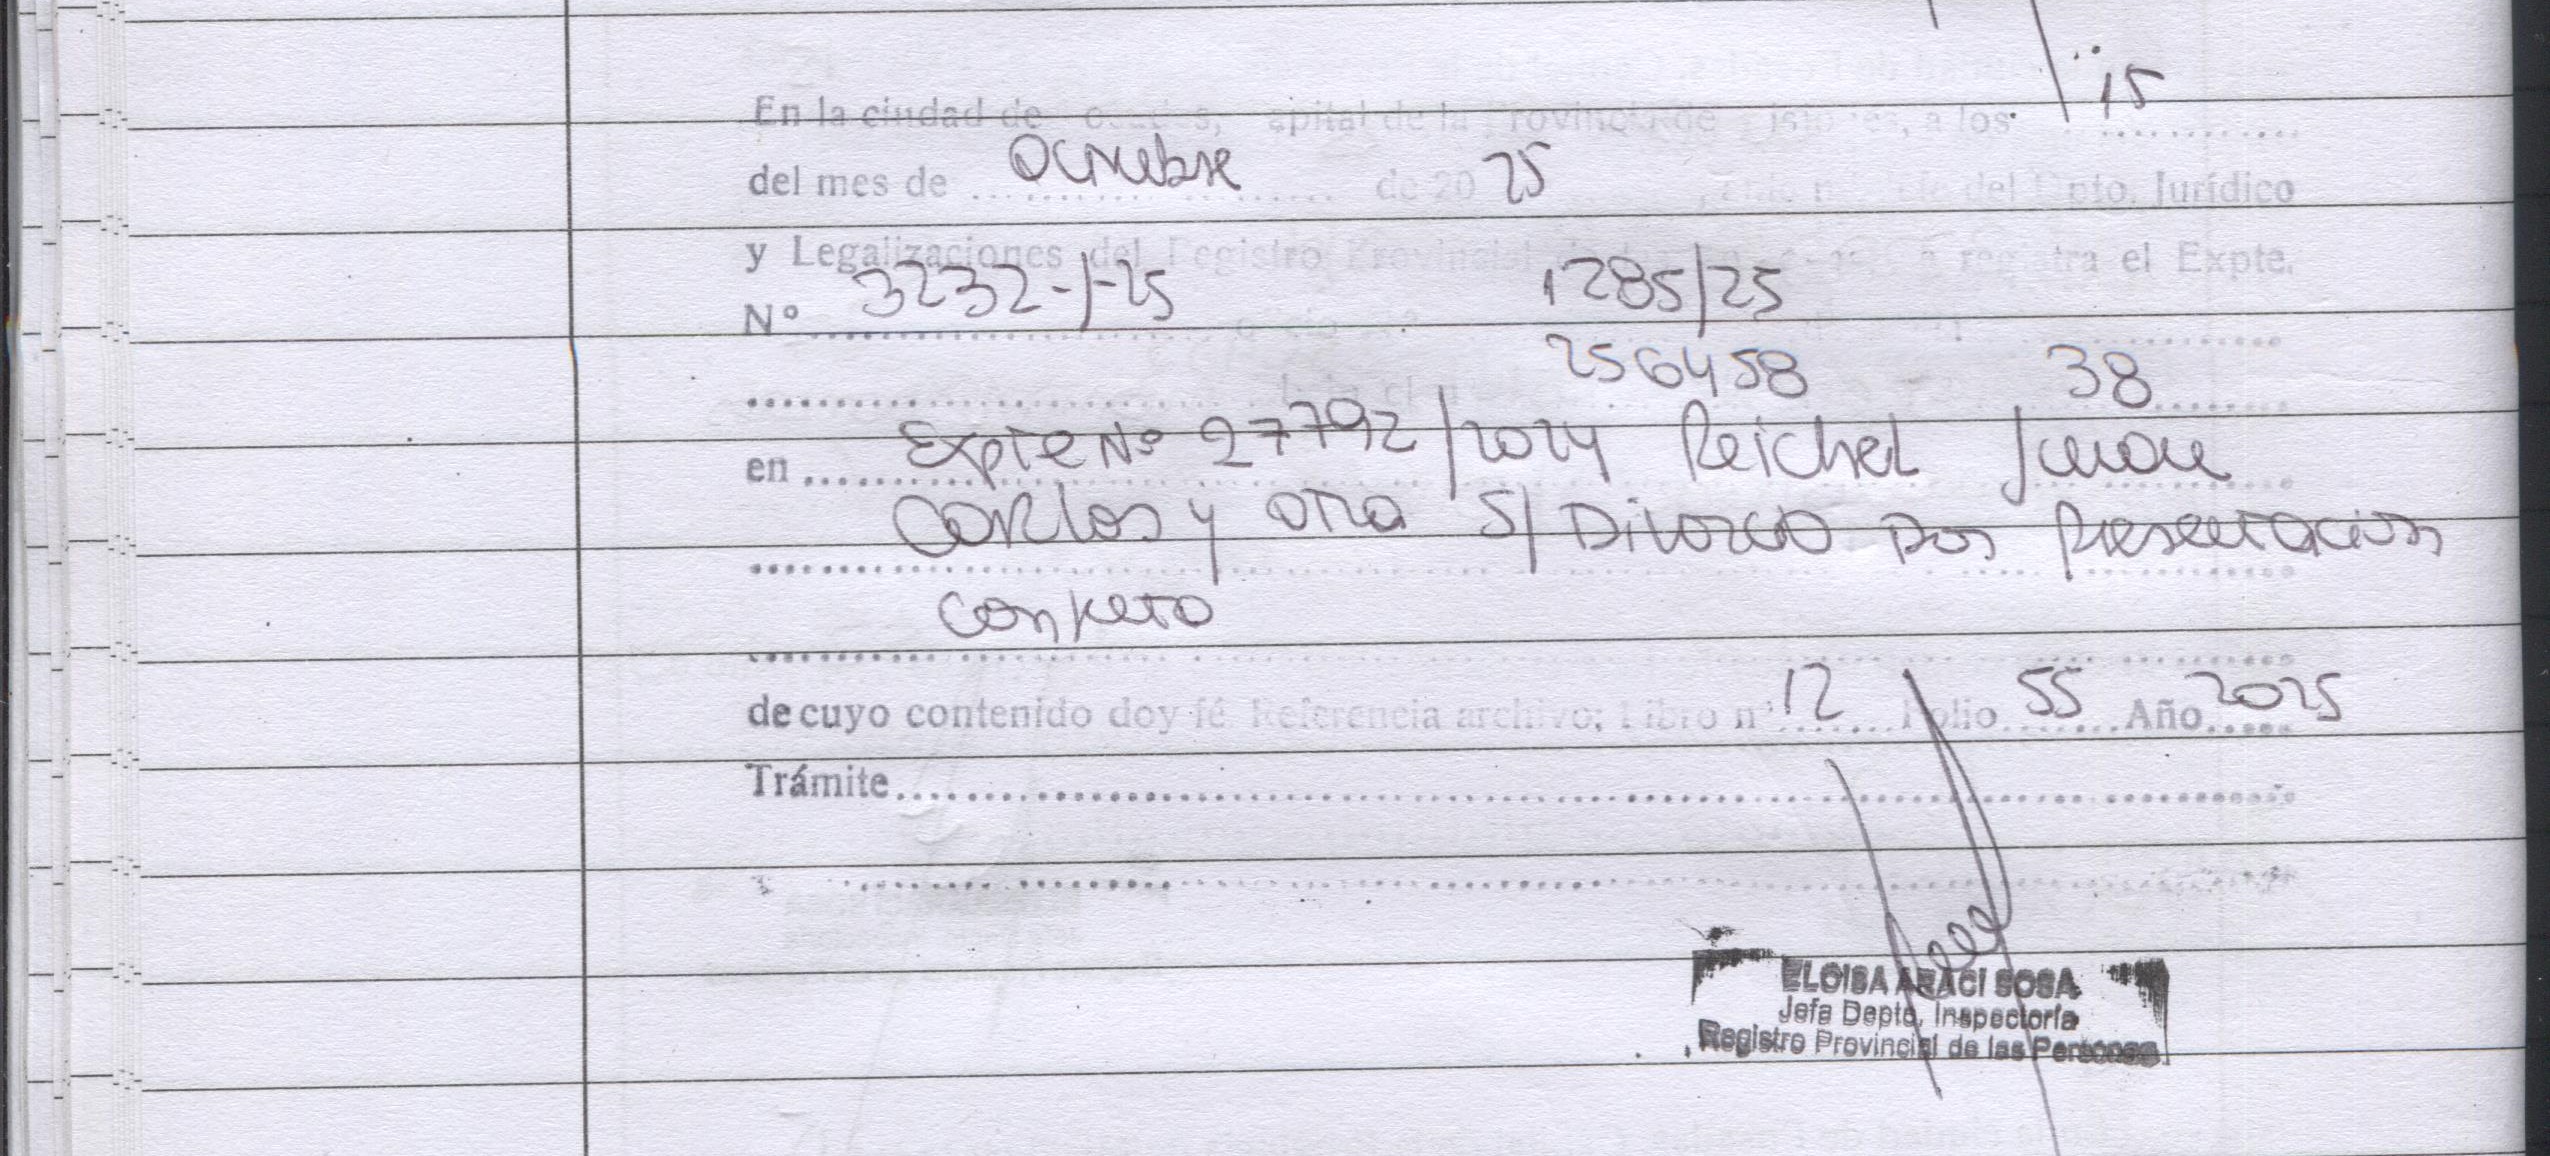 15
En la ciudad de Posadas, Capital de la Provincia de Misiones, a los
del mes de Octubre de 20 25 del Dpto. Jurídico
y Legalizaciones del Registro Provincial registra el Expte.
Nº 3232-/-25 oficio 1285/25
256458 38
en Expte Nº 27792/2024 Reichel Juan
Carlos y otra S/ Divorcio por Presentación
Conjunta
de cuyo contenido doy fé Referencia archivo: Libro nº 12 Folio 55 Año 2025
Trámite
ELOISA ARACI SOSA
Jefa Depto. Inspectoría
Registro Provincial de las Personas